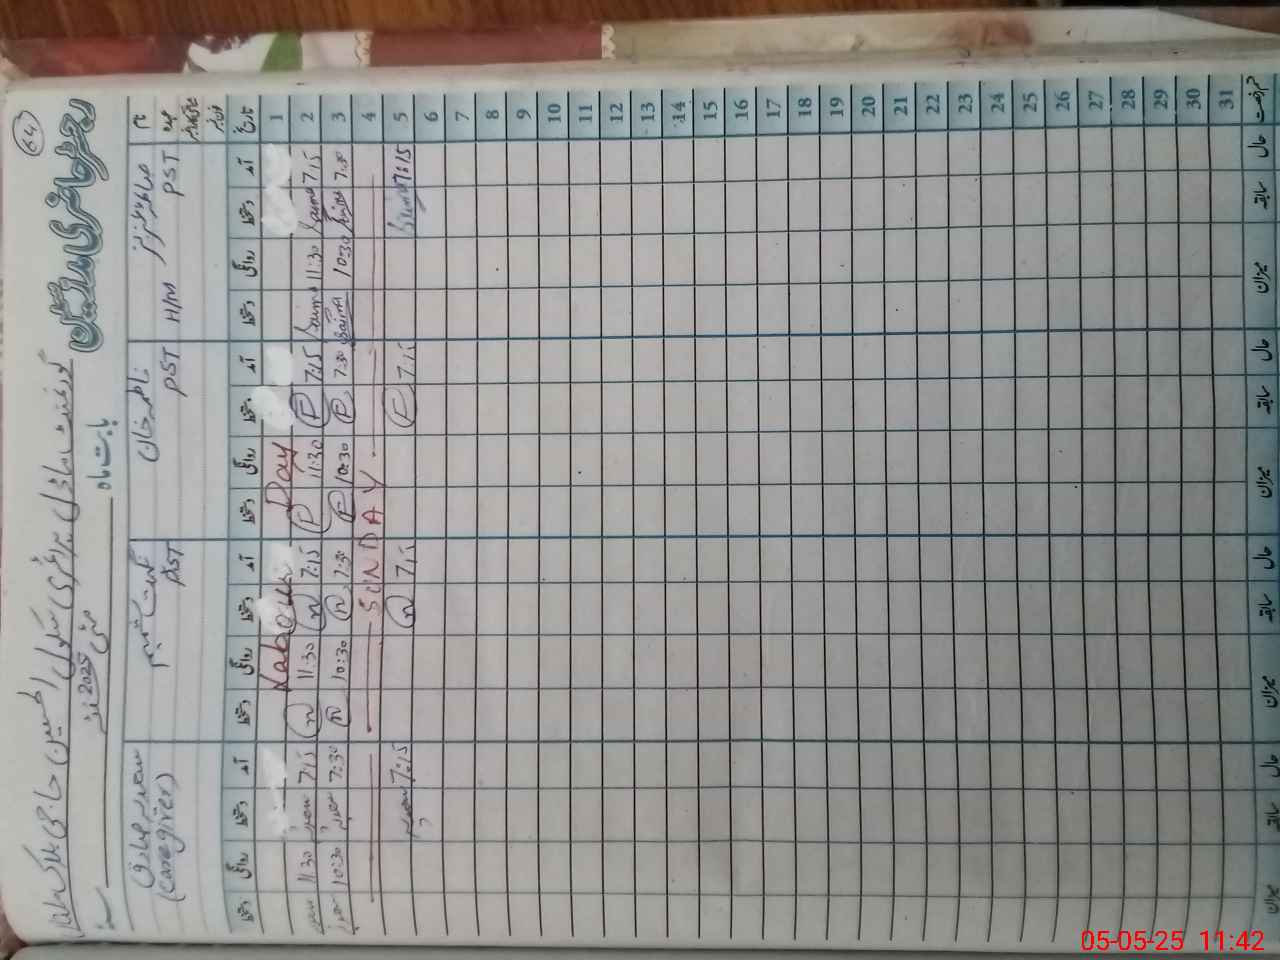 64
رجسٹر حاضری مدرسین
گورنمنٹ ماڈل پرائمری سکول
بابت ماہ مئی 2025ء
نام
عہدہ
PST H/M
ناظمہ خان
PST
PST
سعدیہ صادق
(Caregiver)
تاریخ آمد دستخط روانگی دستخط آمد دستخط روانگی دستخط آمد دستخط روانگی دستخط آمد دستخط روانگی دستخط
1 Labour Day
2 7:15 Saima 11:30 Saima 7:15 11:30 7:15 11:30 7:15 سعدیہ 11:30 سعدیہ
3 7:30 Saima 10:30 Saima 7:30 10:30 7:30 10:30 7:30 سعدیہ 10:30 سعدیہ
4 SUNDAY
5 7:15 Saima 7:15 7:15 7:15 سعدیہ
6
7
8
9
10
11
12
13
14
15
16
17
18
19
20
21
22
23
24
25
26
27
28
29
30
31
حال سابقہ میزان حال سابقہ میزان حال سابقہ میزان حال سابقہ میزان
05-05-25 11:42